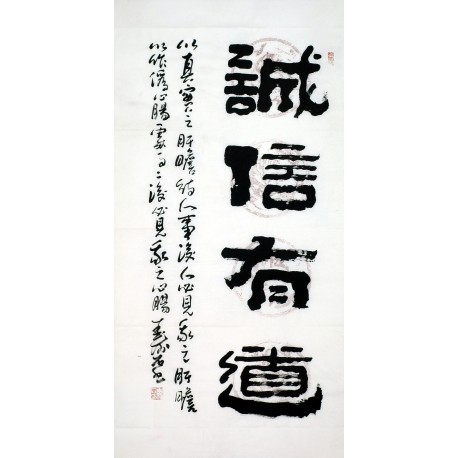 誠信有道
以真實之肝膽待人事後人必見我之肝膽
以偽心腸處後必見我之心腸